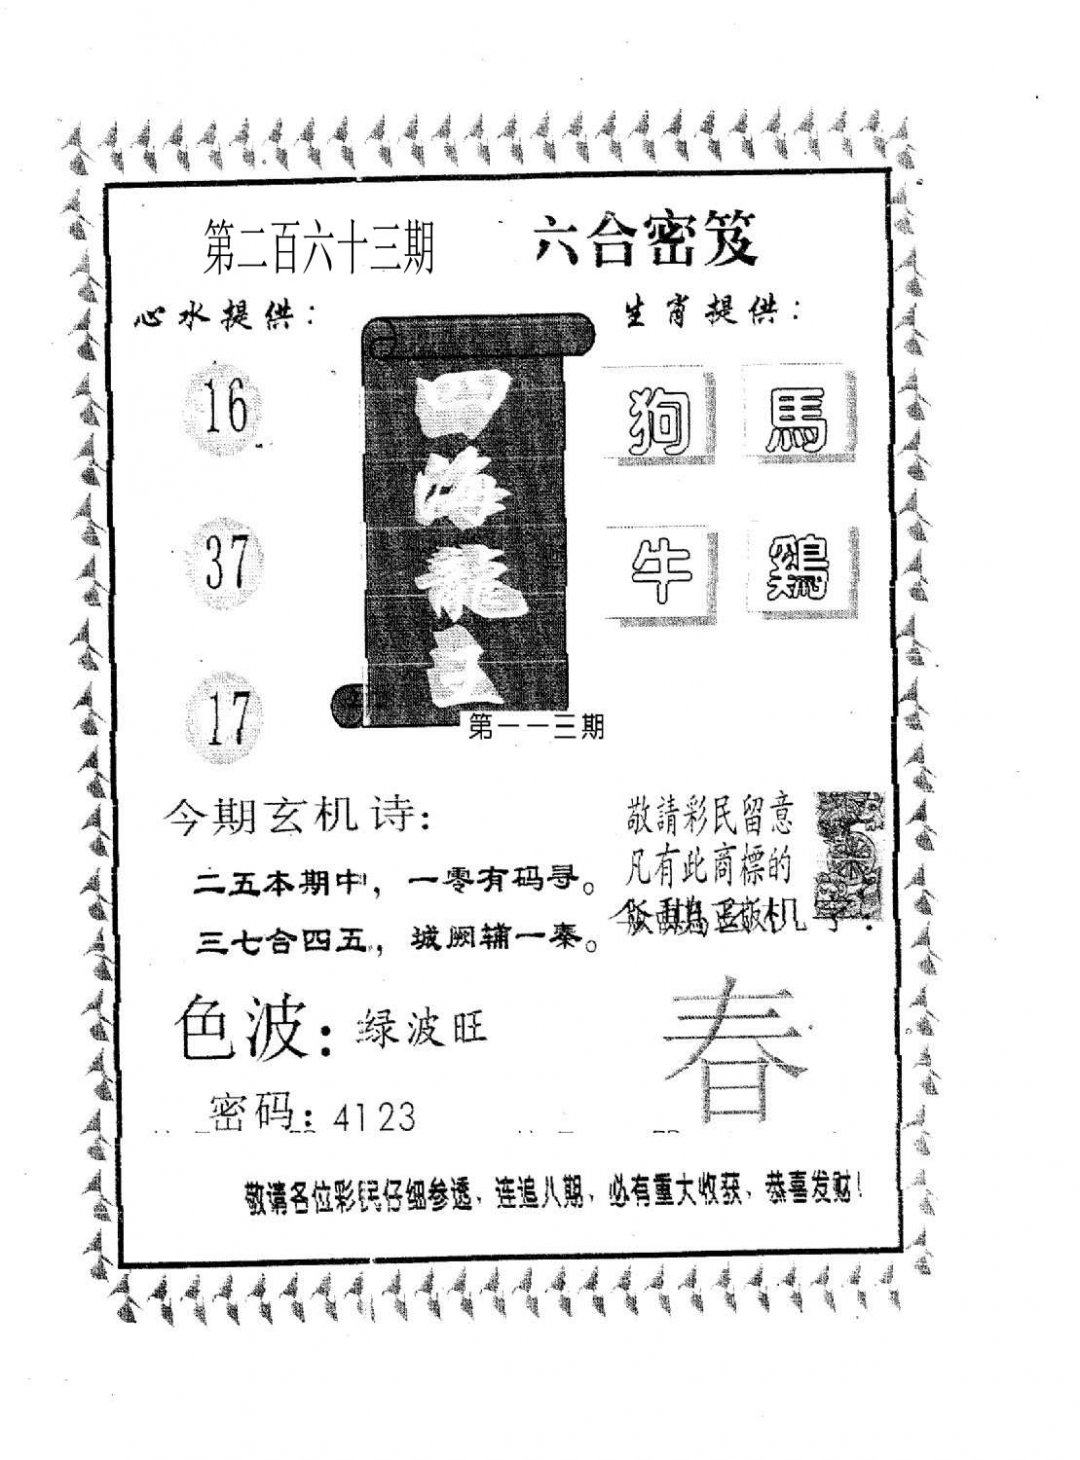 第二百六十三期
六合密笈
心水提供：
生肖提供：
16
37
17
四海龍王
第一一三期
狗 馬
牛 鷄
今期玄机诗：
二五本期中，一零有码寻。
三七合四五，城阙辅一秦。
敬請彩民留意
凡有此商標的
色波：绿波旺
春
密码：4123
敬请各位彩民仔细参透、连追八期、必有重大收获、恭喜发财！